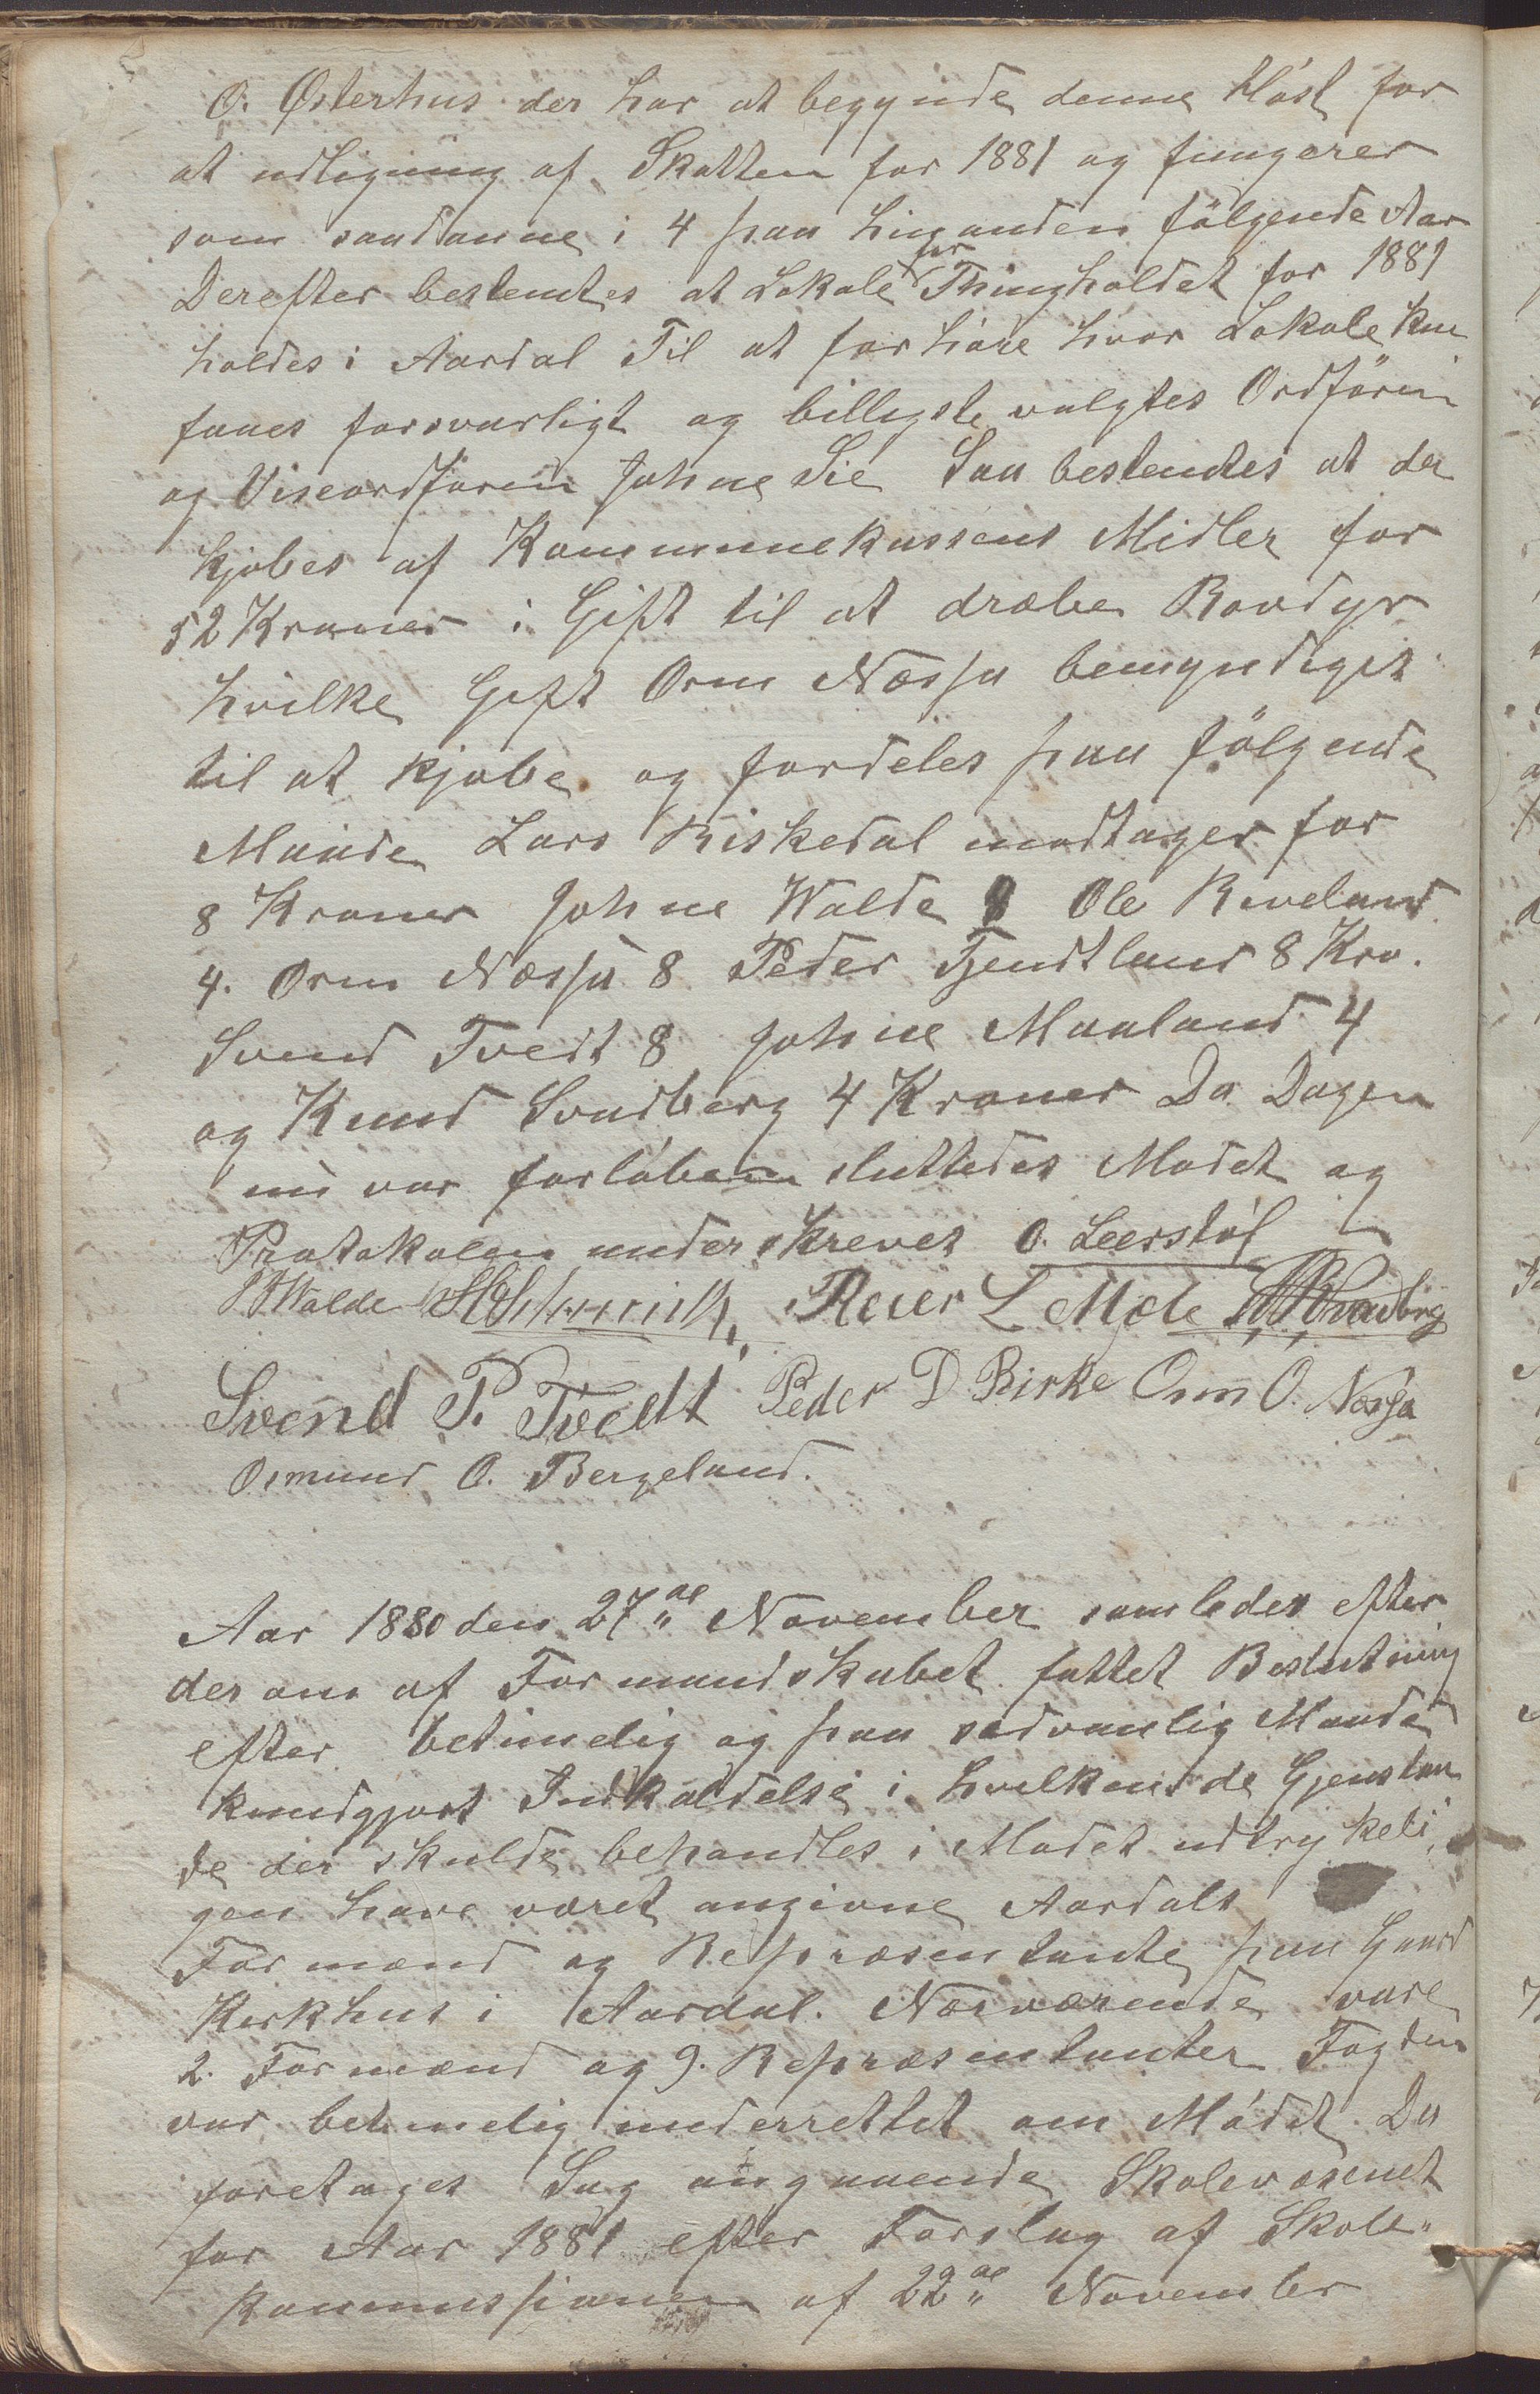 O. Østerhus der har at begynde denne Høst for
at udligning af Skatten for 1881 og fungerer
som saadanne i 4 paa hinanden følgende Aar
Derefter bestemtes at Lokale for Thingholdet for 1881
holdes i Aardal Til at forhøre hvor Lokale kun
faaes forsvarligt og billigste valgtes Ordføren
og Viseordføren Johne Sie Saa bestemtes at der
kjøbes af Kommunekassens Midler for
52 Kroner i Gift til at dræbe Rovdyr
hvilke Gift Orm Næssa bemyndiget
til at kjøbe og fordeles paa følgende
Maade Lars Riskedal modtager for
8 Kroner Johne Walde 8 Ole Riveland
4. Orm Næssa 8 Peder Tjentland 8 Kro.
Svend Tvedt 8 Johne Maaland 4
og Knud Svadberg 4 Kroner Da Dagen
nu var forløben sluttedes Mødet og
Protokolen underskrevet O. Leerstøl
Walde Reier L Mæle
Svend P. Tvedt Peder D Birke Orm O. Næssa
Osmund O. Bergeland.
Aar 1880 den 27de November samledes efter
derom af Formandskabet fattet Beslutning
efter betimelig og paa sædvanlig Maade
kundgjort Indkaldelse i hvilken de Gjenstan
de der skulde behandles i Mødet udtrykeli
gen have været angivne Aardals
Formænd og Repræsentante paa Gaard
Kirkhus i Aardal. Nærværende vare
2. Formænd og 9. Repræsentanter Fogden
var betimelig underrettet om Mødet Da
foretages Sag angaaende Skolevæsenet
for Aar 1881 efter Forslag af Skole-
kommissionen af 22de November